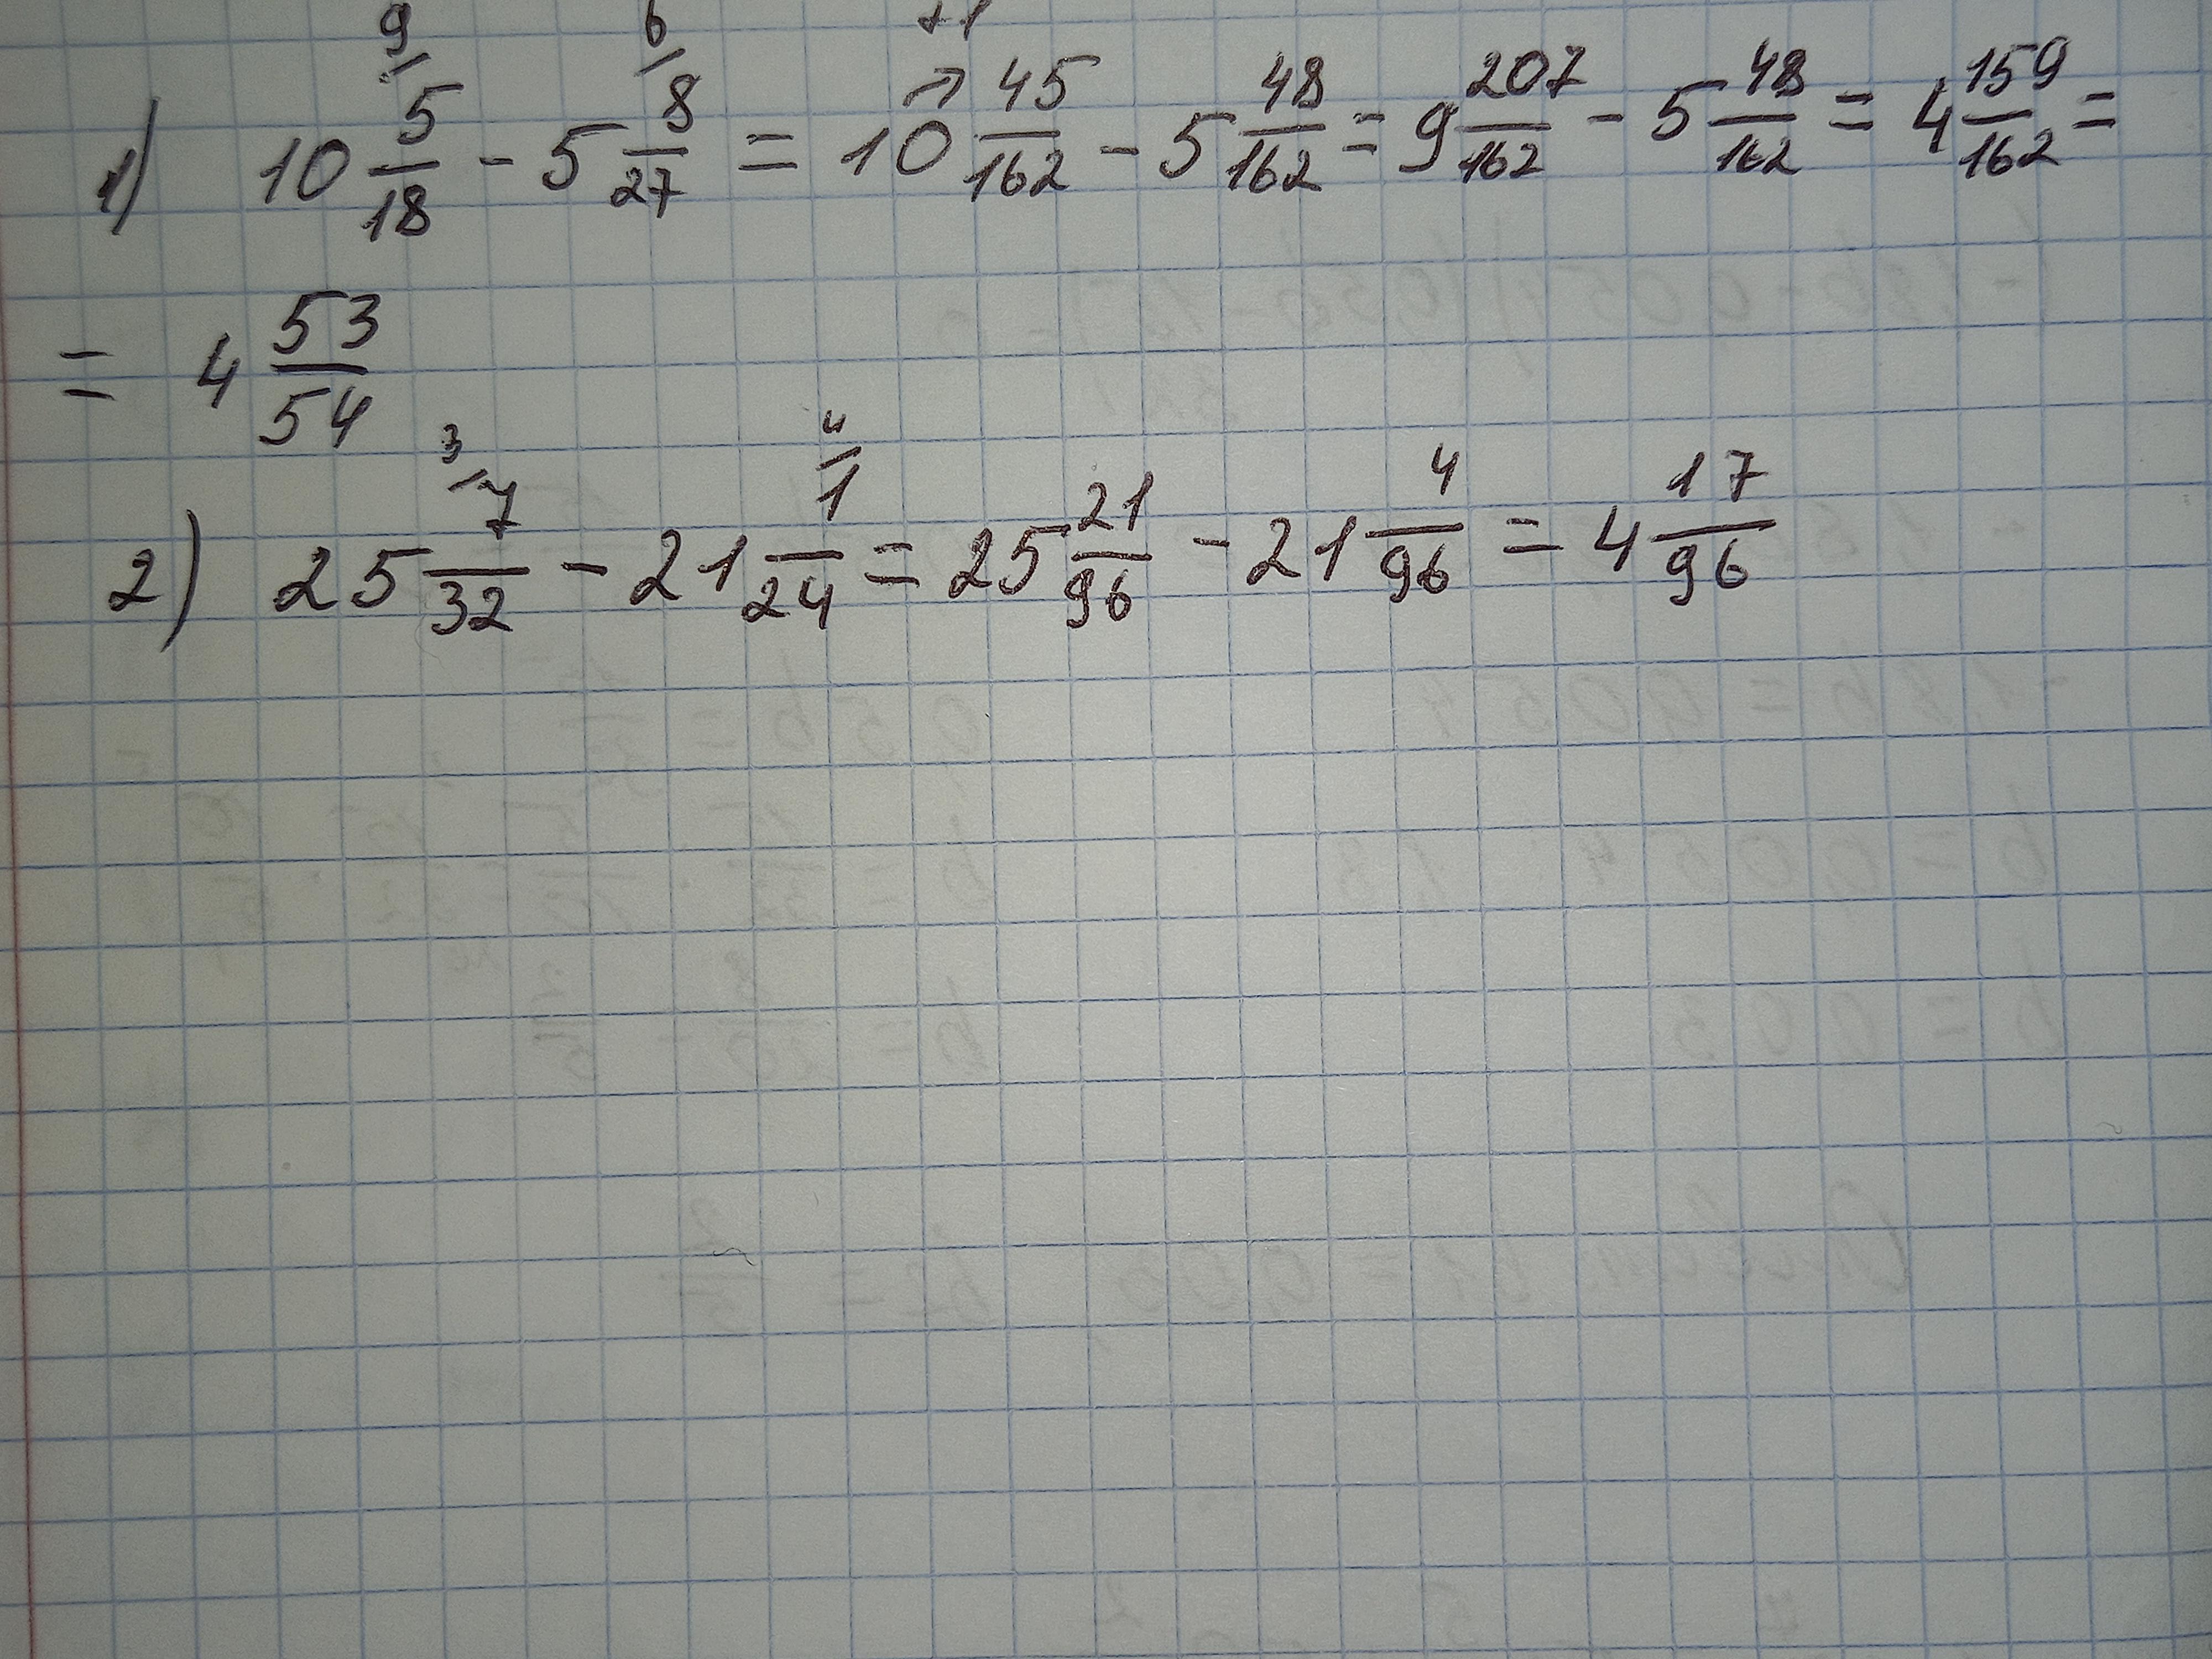 1) 10 5/18 - 5 8/27 = 10 45/162 - 5 48/162 = 9 207/162 - 5 48/162 = 4 159/162 =
= 4 53/54
2) 25 7/32 - 21 1/24 = 25 21/96 - 21 4/96 = 4 17/96